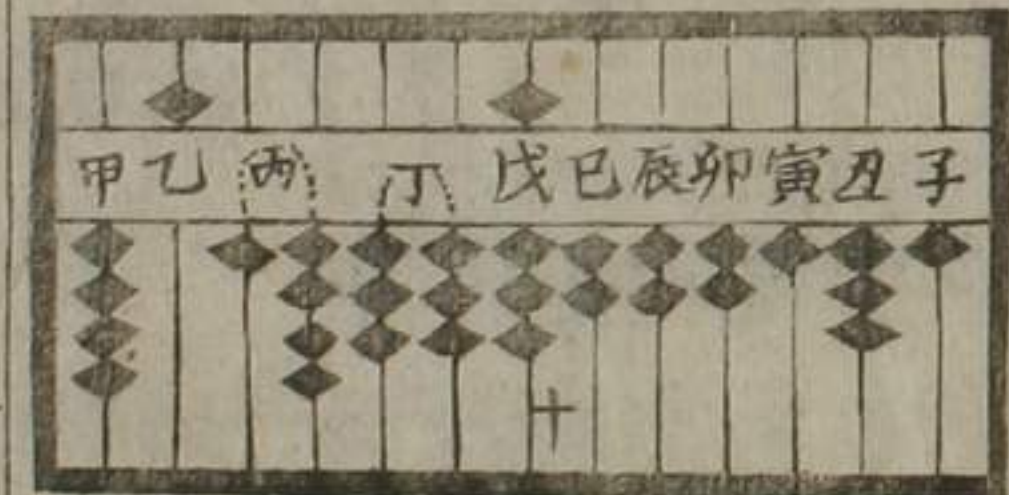 甲乙丙丁戊巳辰卯寅丑子
十